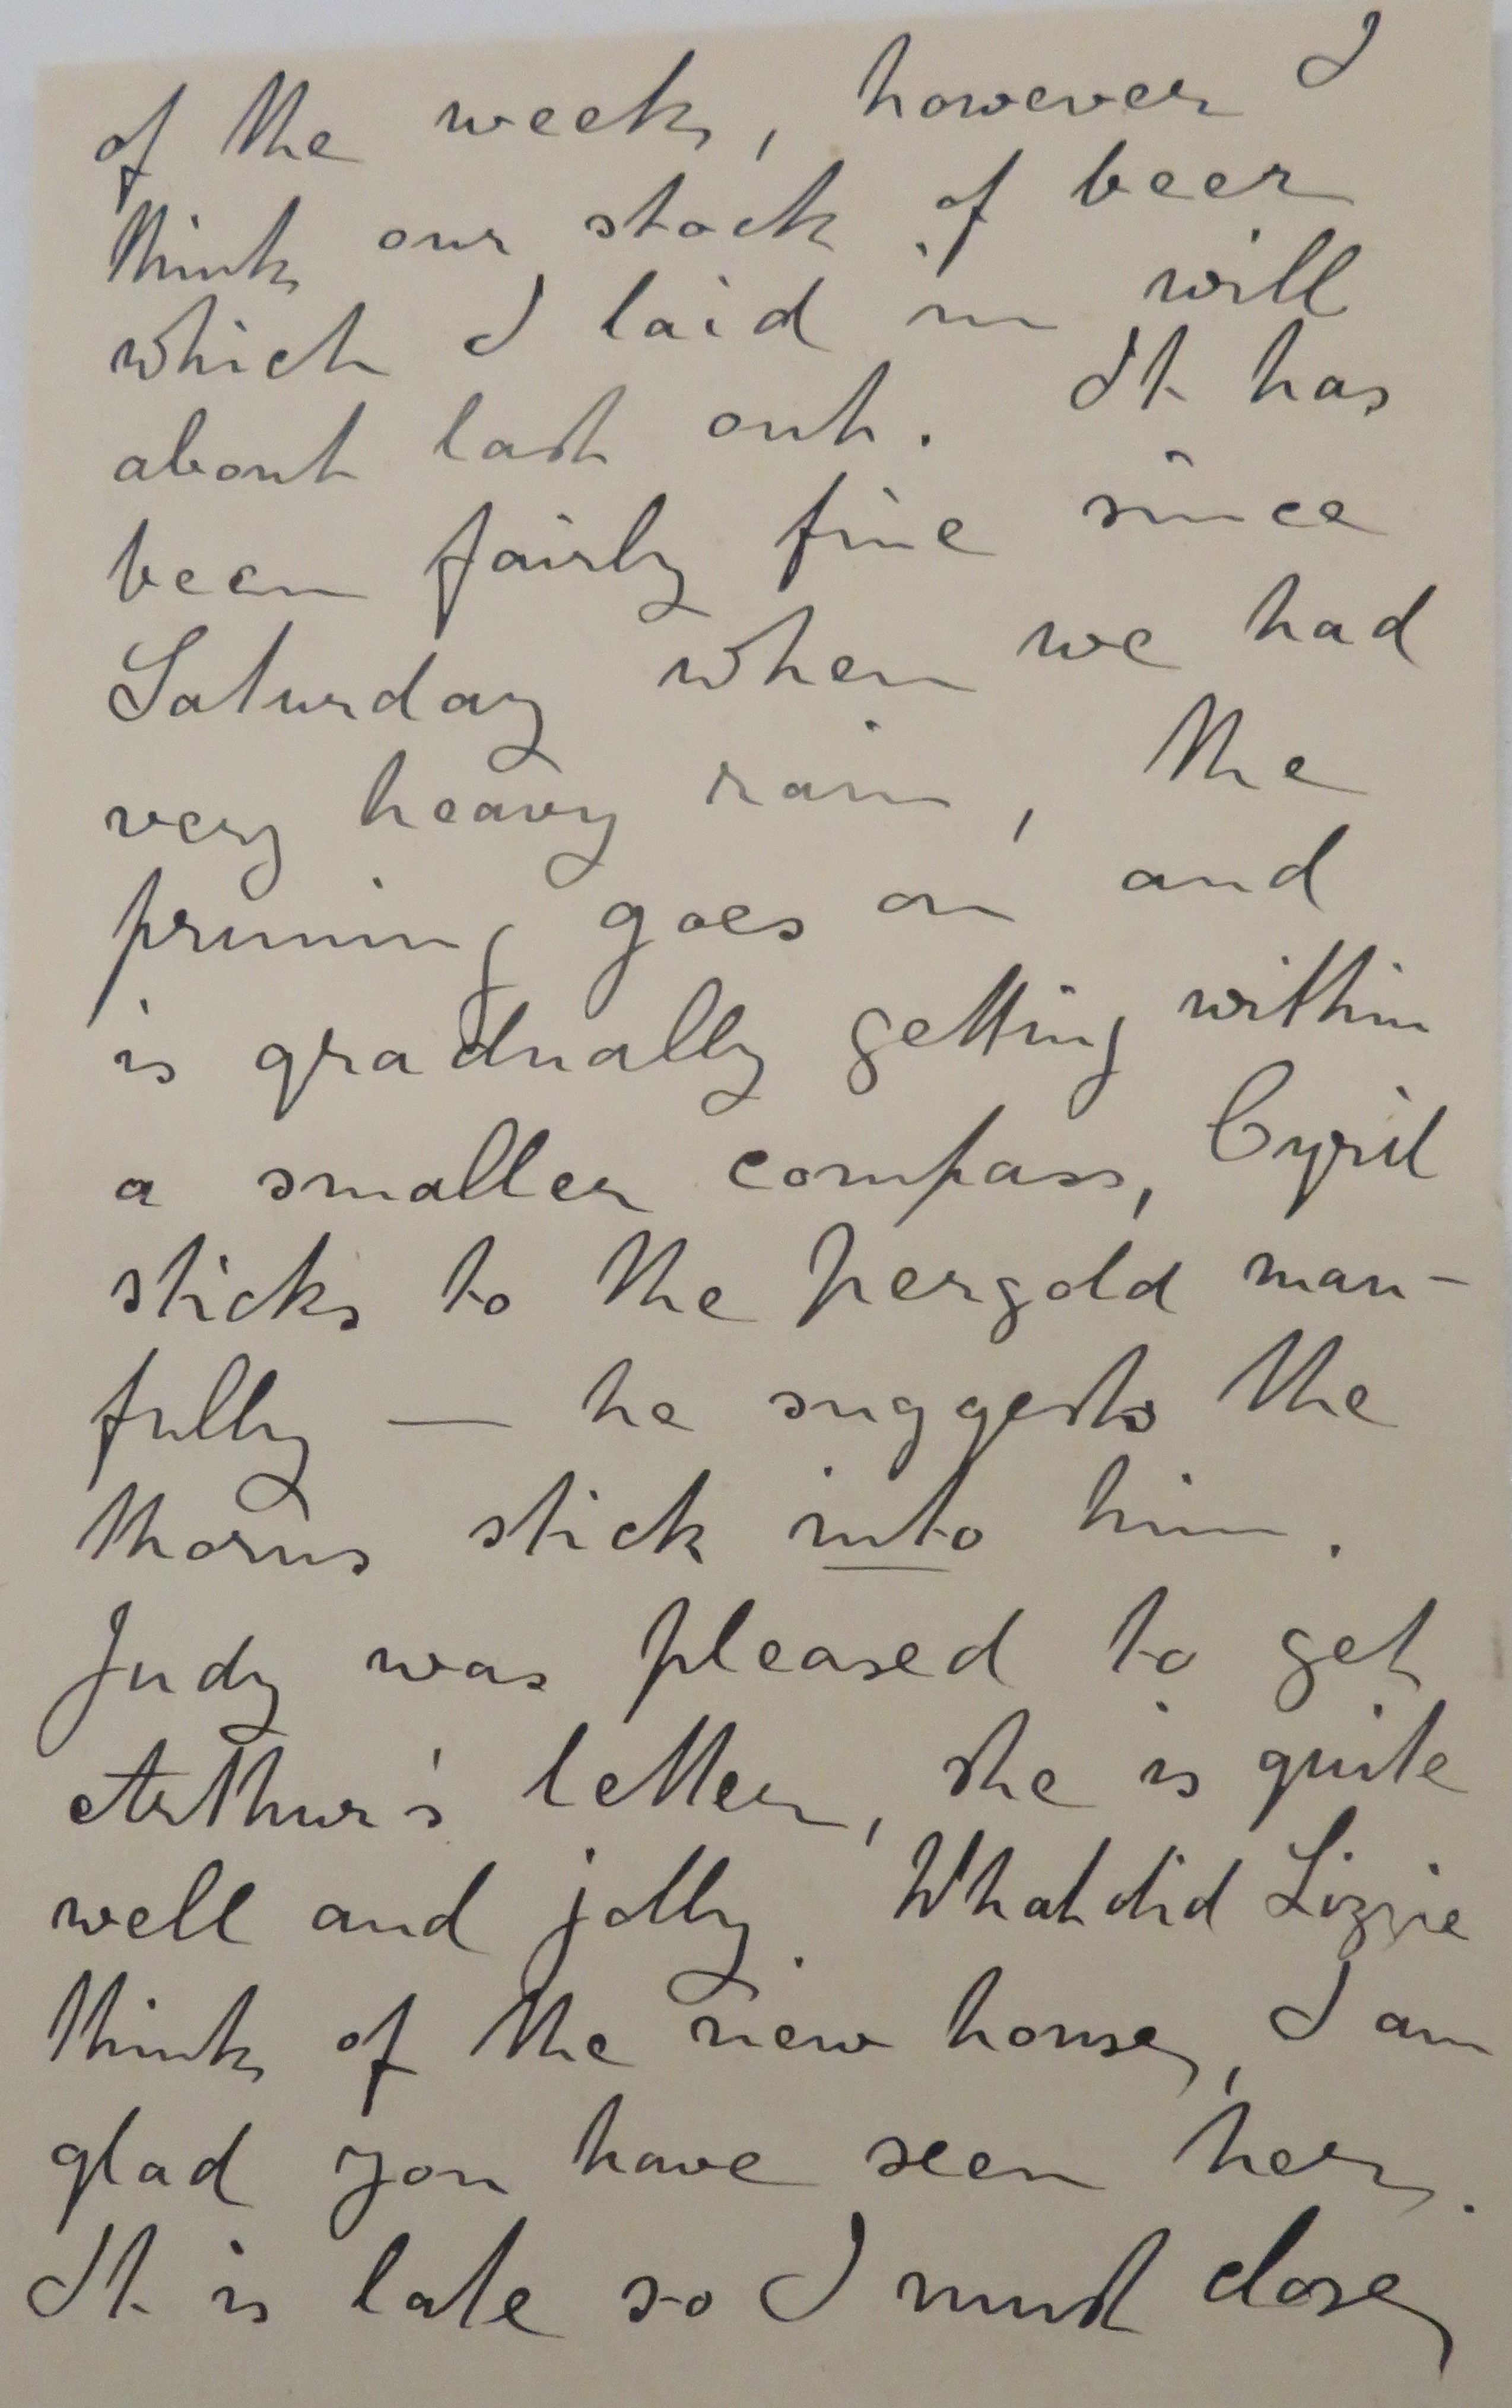 of the week, however I
think our stock of beer
which I laid in will
about last out. It has
been fairly fine since
Saturday when we had
very heavy rain, the
pruning goes on and
is gradually getting within
a smaller compass, Cyril
sticks to the pergold man-
fully — he suggests the
thorns stick into him.
Judy was pleased to get
Arthur's letter, she is quite
well and jolly. What did Lizzie
think of the new house, I am
glad you have seen her.
It is late so I must close,